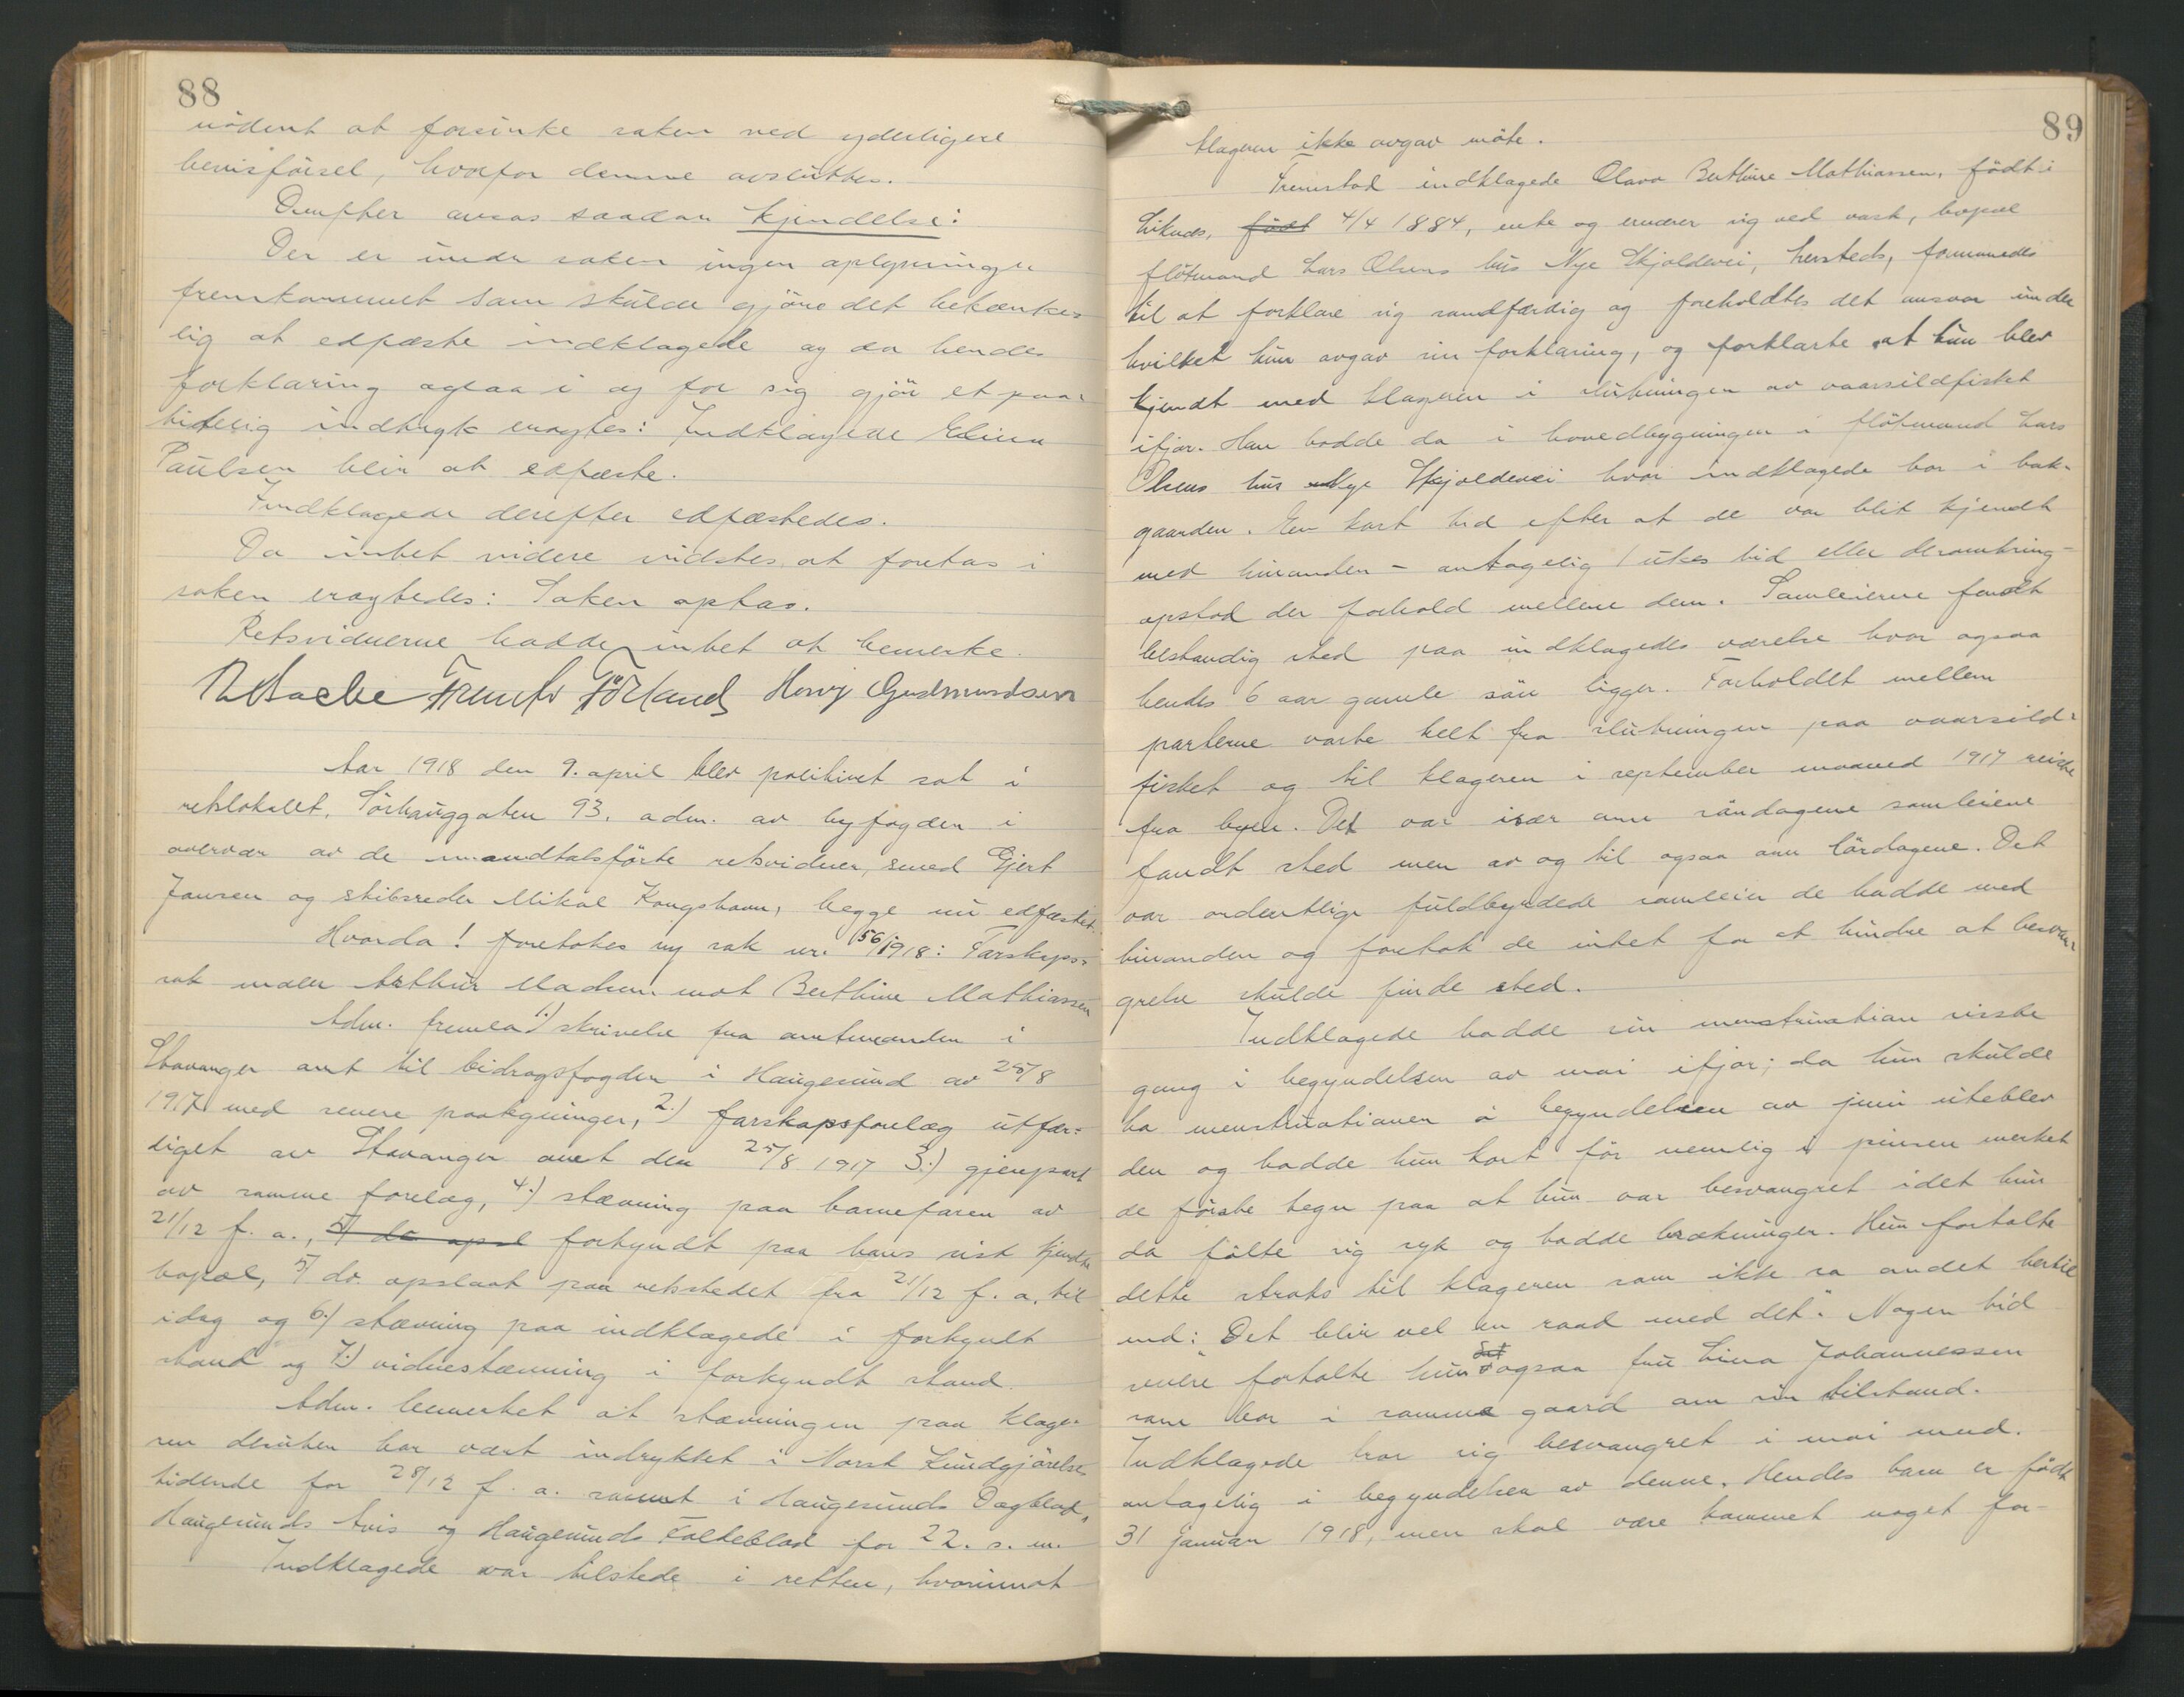 88
uödent at forsinke saken ved yderligere
bevisförsel, hvorfor denne avsluttes.
Derefter avsas saadan kjendelse:
Der er under saken ingen oplysninger
fremkommet som skulde gjöre det betænke-
lig at edfæste indklagede og da hendes
forklaring ogsaa i og for sig gjör et paa-
litelig indtryk eragtes: Indklagede Elina
Paulsen blir at edfæste.
Indklagede derefter edfæstedes.
Da intet videre vidstes at foretas i
saken eragtedes: Saken optas.
Retsvidnerne hadde intet at bemerke.
Förland Henrij Gudmundsen
Aar 1918 den 9. april blev politiret sat i
retslokalet, Sörhauggaten 93. adm. av byfogden i
overvær av de mandtalsförte retsvidner, smed Gjert
Jansen og skibsreder Mikal Kongshavn, begge nu edfæstet.
Hvorda! foretokes ny sak nr. 56/1918: Farskaps-
sak under Arthur Madsen mot Berthine Mathiassen
Adm. fremla 1.) skrivelse fra amtmanden i
Stavanger amt til bidragsfogden i Haugesund av 25/8
1917 med senere paategninger, 2.) farskapsforelæg utfær-
diget av Stavanger amt den 25/8 1917 3.) gjenpart
av samme forelæg, 4.) stævning paa barnefaren av
21/12 f. a., 5) do opsl forkyndt paa hans sist kjendte
bopæl, 5) do. opslaat paa retsstedet fra 21/12 f. a. til
idag og 6.) stævning paa indklagede i forkyndt
stand og 7.) vidnestævning i forkyndt stand.
Adm. bemerket at stævningen paa klage-
ren desuten har vært indrykket i Norsk Kundgjörelses
tidende for 28/12 f. a. samt i Haugesunds Dagblad,
Haugesunds Avis og Haugesunds Folkeblad for 22. s. m.
Indklagede var tilstede i retten, hvorimot
89
klageren ikke avgav möte.
Fremstod indklagede Olava Berthine Mathiassen, födt i
födt 4/4 1884, enke og ernærer sig ved vask, bopæl
flötmand Lars Olsens hus Nye Skjoldevei, hersteds, formanedes
til at forklare sig sandfærdig og foreholdtes det ansvar under
hvilket hun avgav sin forklaring, og forklarte at hun blev
kjendt med klageren i slutningen av vaarsildfisket
ifjor. Han bodde da i hovedbygningen i flötmand Lars
Olsens hus Nye Skjoldevei hvor indklagede bor i bak-
gaarden. En kort tid efter at de var blit kjendt
med hinanden – antagelig 1 ukes tid eller deromkring –
opstod der forhold mellem dem. Samleierne fandt
bestandig sted paa indklagedes værelse hvor ogsaa
hendes 6 aar gamle sön ligger. Forholdet mellem
parterne varte helt fra slutningen paa vaarsild-
fisket og til klageren i september maaned 1917 reiste
fra byen. Det var især om söndagene samleiene
fandt sted men av og til ogsaa om lördagene. Det
var ordentlige fuldbyrdede samleier de hadde med
hinanden og foretok de intet for at hindre at besvan-
grelse skulde finde sted.
Indklagede hadde sin menstruation sisste
gang i begyndelsen av mai ifjor; da hun skulde
ha menstruationen i begyndelsen av juni uteblev
den og hadde hun kort för nemlig i pinsen merket
de förste tegn paa at hun var besvangret idet hun
da fölte sig syk og hadde brækninger. Hun fortalte
dette straks til klageren som ikke sa andet hertil
end: "Det blir vel en raad med det". Nogen tid
senere fortalte hun det ogsaa fru Lina Johannessen
som bor i samme gaard om sin tilstand.
Indklagede tror sig besvangret i mai mnd.
antagelig i begyndelsen av denne. Hendes barn er födt
31 januar 1918, men skal være kommet noget for-